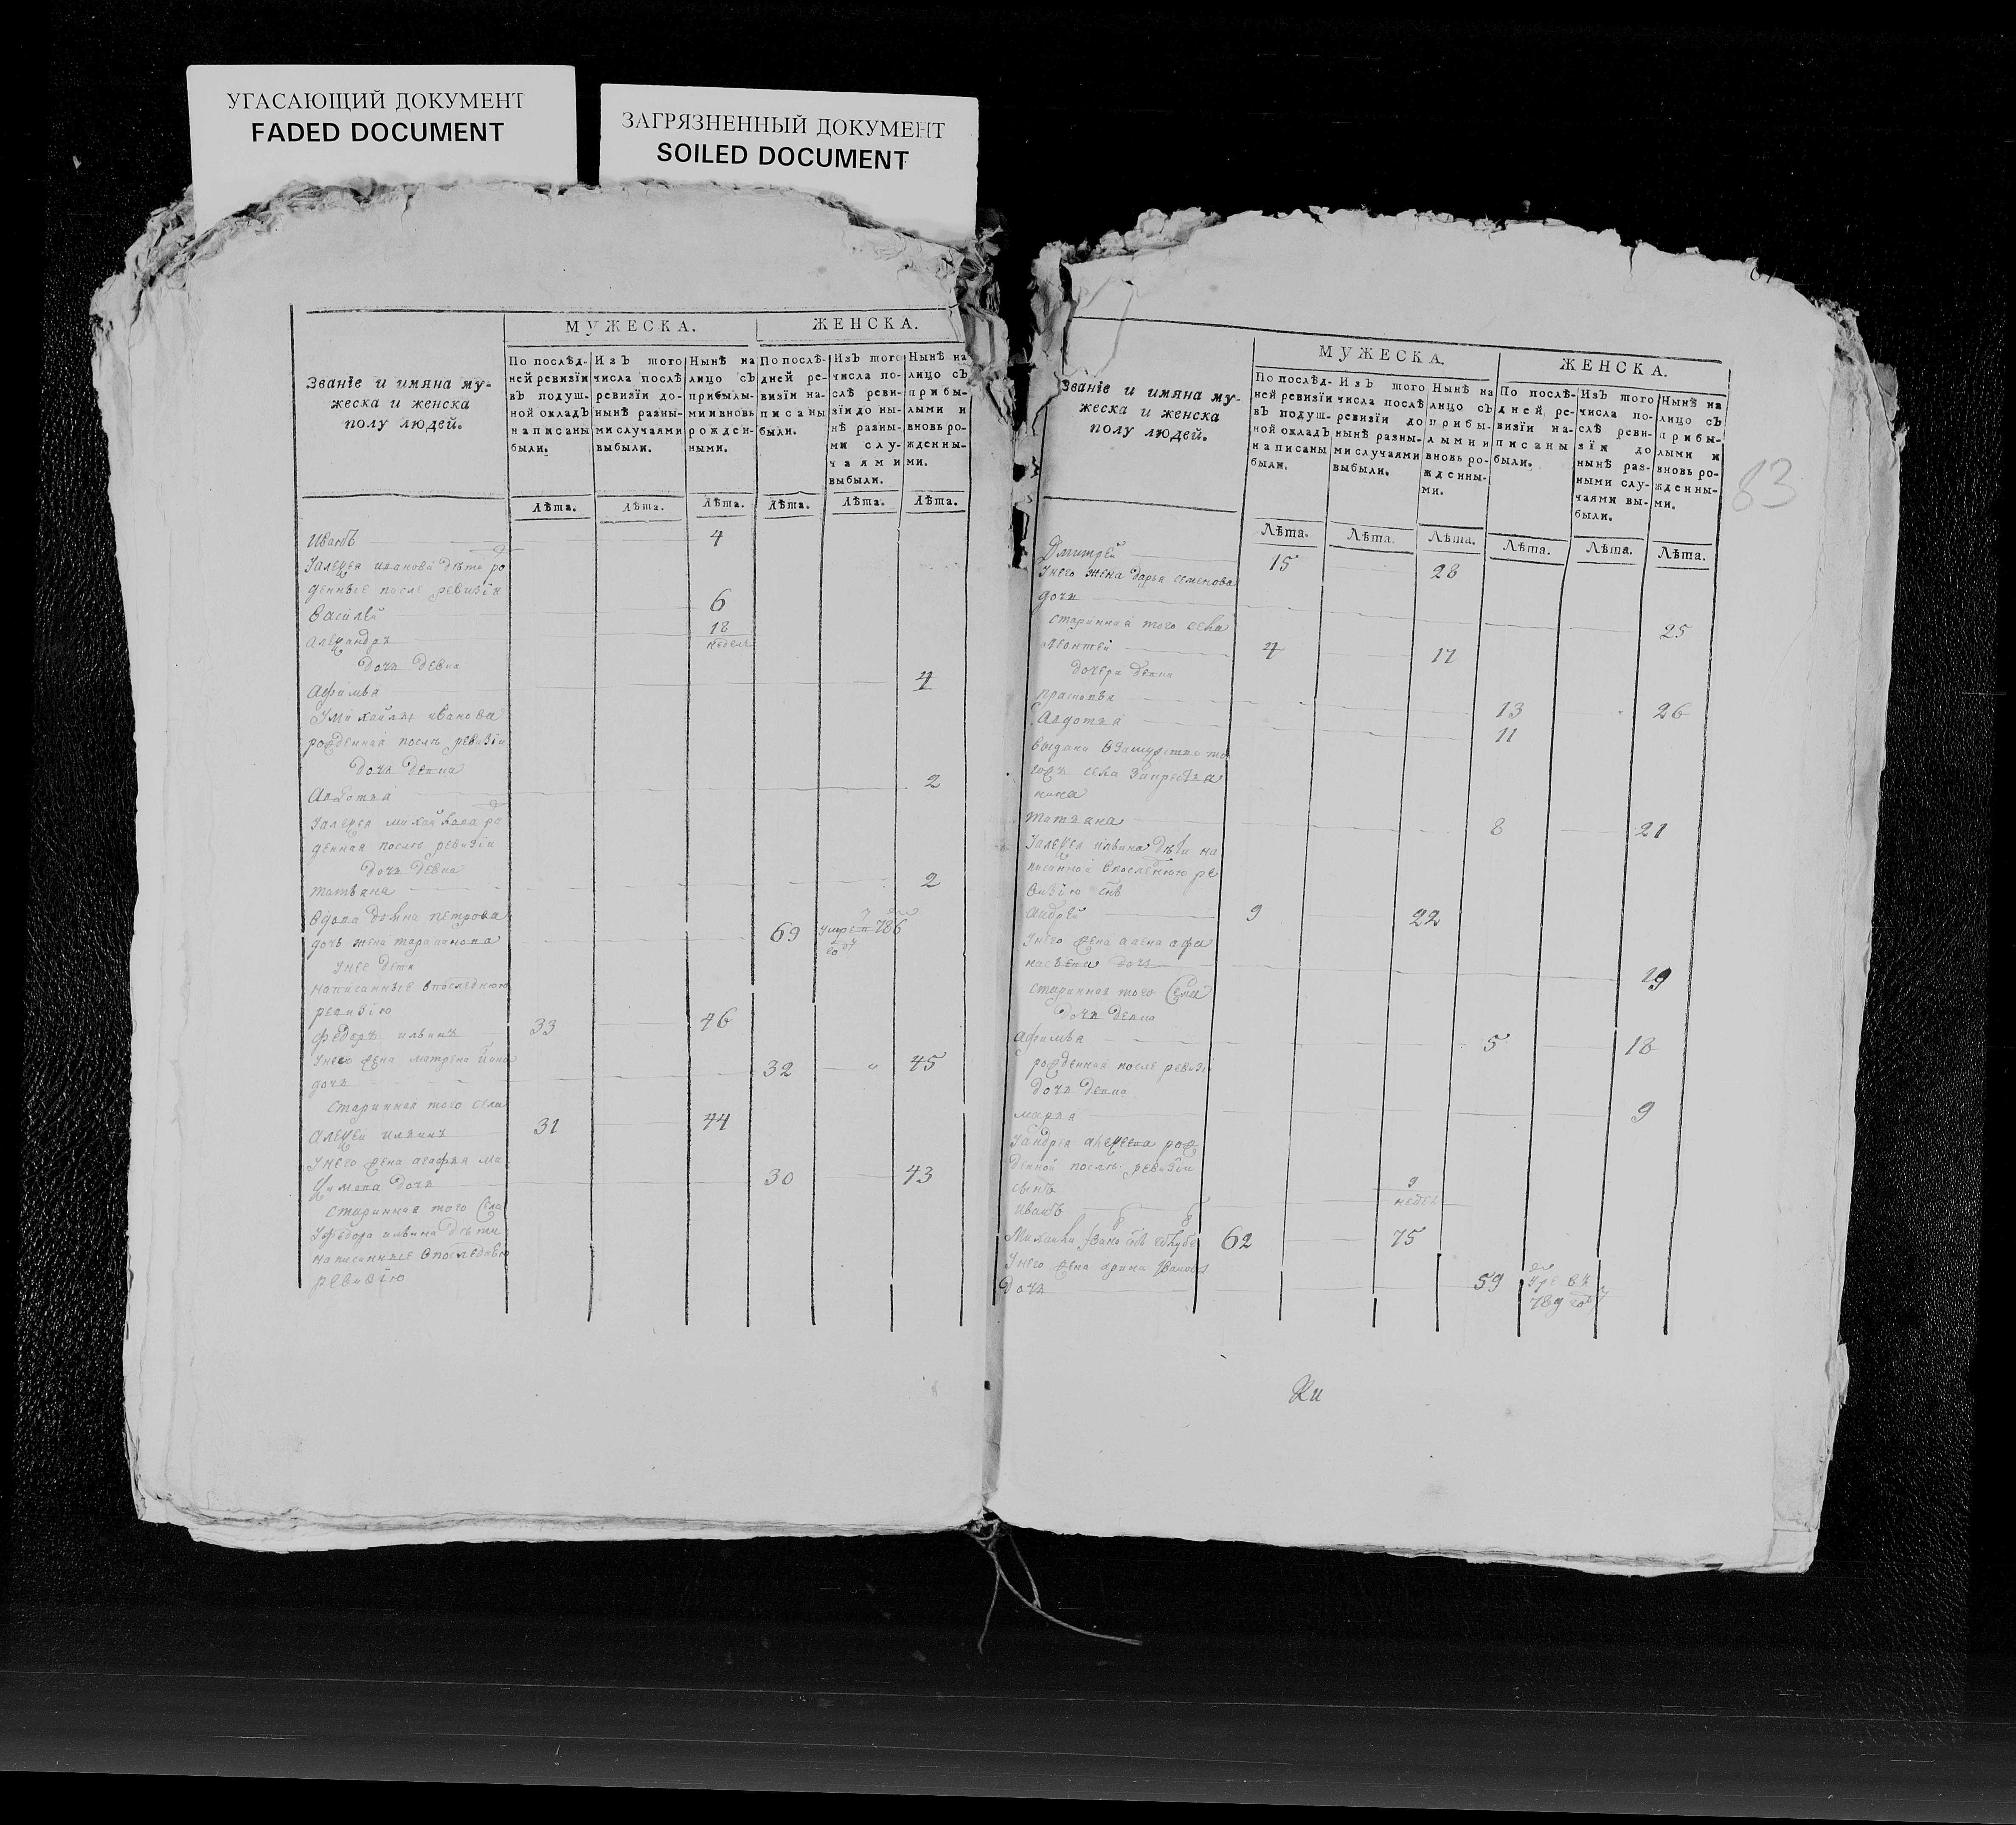 УГАСАЮЩИЙ ДОКУМЕНТ
FADED DOCUMENT
ЗАГРЯЗНЕННЫЙ ДОКУМЕНТ
SOILED DOCUMENT
МУЖЕСКА.
ЖЕНСКА.
Званїе и имяна му-
жеска и женска
полу людей.
По послѣд-
ней ревизїи
въ подуш-
ной окладъ
написаны
были.
Изъ того
числа послѣ
ревизїи до-
нынѣ разны-
ми случаями
выбыли.
Нынѣ на
лицо съ
прибылы-
ми и вновь
рожден-
ными.
По послѣ-
дней ре-
визїи на-
писаны
были.
Изъ того
числа по-
слѣ реви-
зїи до ны-
нѣ разны-
ми слу-
чаями
выбыли.
Нынѣ на
лицо съ
прибы-
лыми и
вновь ро-
жденны-
ми.
Лѣта.
Лѣта.
Лѣта.
Лѣта.
Лѣта.
Лѣта.
Иванъ 4
Уалеѯея иванова дѣти ро
денные после ревизїи
Василей 6
алеѯандръ 18 недель
дочь девка
Афимья 4
Умихайлы иванова
рожденная послѣ ревизїи
дочь девка
Авдотья 2
Уалеѯея михайлова ро
денная послѣ ревизїи
дочь девка
татьяна 2
вдова домна петрова
дочь жена 69 786
году
унее дети
написанные впоследнюю
ревизїю
федоръ ильинъ 33 46
Унего жена матрена
дочь 32 45
старинная того села
Алеѯей ильинъ 31 44
Унего жена агафья ма
ѯимова дочь 30 43
старинная того села
Уфедора ильина дѣти
написанные впоследнюю
ревизїю
МУЖЕСКА.
ЖЕНСКА.
Званїе и имяна му-
жеска и женска
полу людей.
По послѣд-
ней ревизїи
въ подуш-
ной окладъ
написаны
были.
Изъ того
числа послѣ
ревизїи до
нынѣ разны-
ми случаями
выбыли.
Нынѣ на
лицо съ
прибы-
лыми и
вновь ро-
жденны-
ми.
По послѣ-
дней ре-
визїи на-
писаны
были.
Изъ того
числа по-
слѣ реви-
зїи до
нынѣ раз-
ными слу-
чаями вы-
были.
Нынѣ на
лицо съ
прибы-
лыми и
вновь ро-
жденны-
ми.
83
Лѣта.
Лѣта.
Лѣта.
Лѣта.
Лѣта.
Лѣта.
Дмитрей 15 28
Унего жена дарья семенова
дочь 25
старинная того села
Леонтей 4 17
дочери девки
прасковья 13 26
Авдотья 11
выдана взамужство то
гожъ села закрестья
нина
татьяна 8 21
Уалеѯея ильина дѣти на
писанной впоследнюю ре
визїю
андрей 9 22
Унего жена алена афа
насьева дочь 19
старинная того села
дочь девка
Афимья 5 18
рожденная после ревизїи
дочь девка
марья 9
Уандрея алеѯеева рож
денной послѣ ревизїи
сынъ 9
Иванъ недель
Михайла 62 75
Унего жена арина Иванова
дочь 59 789 году